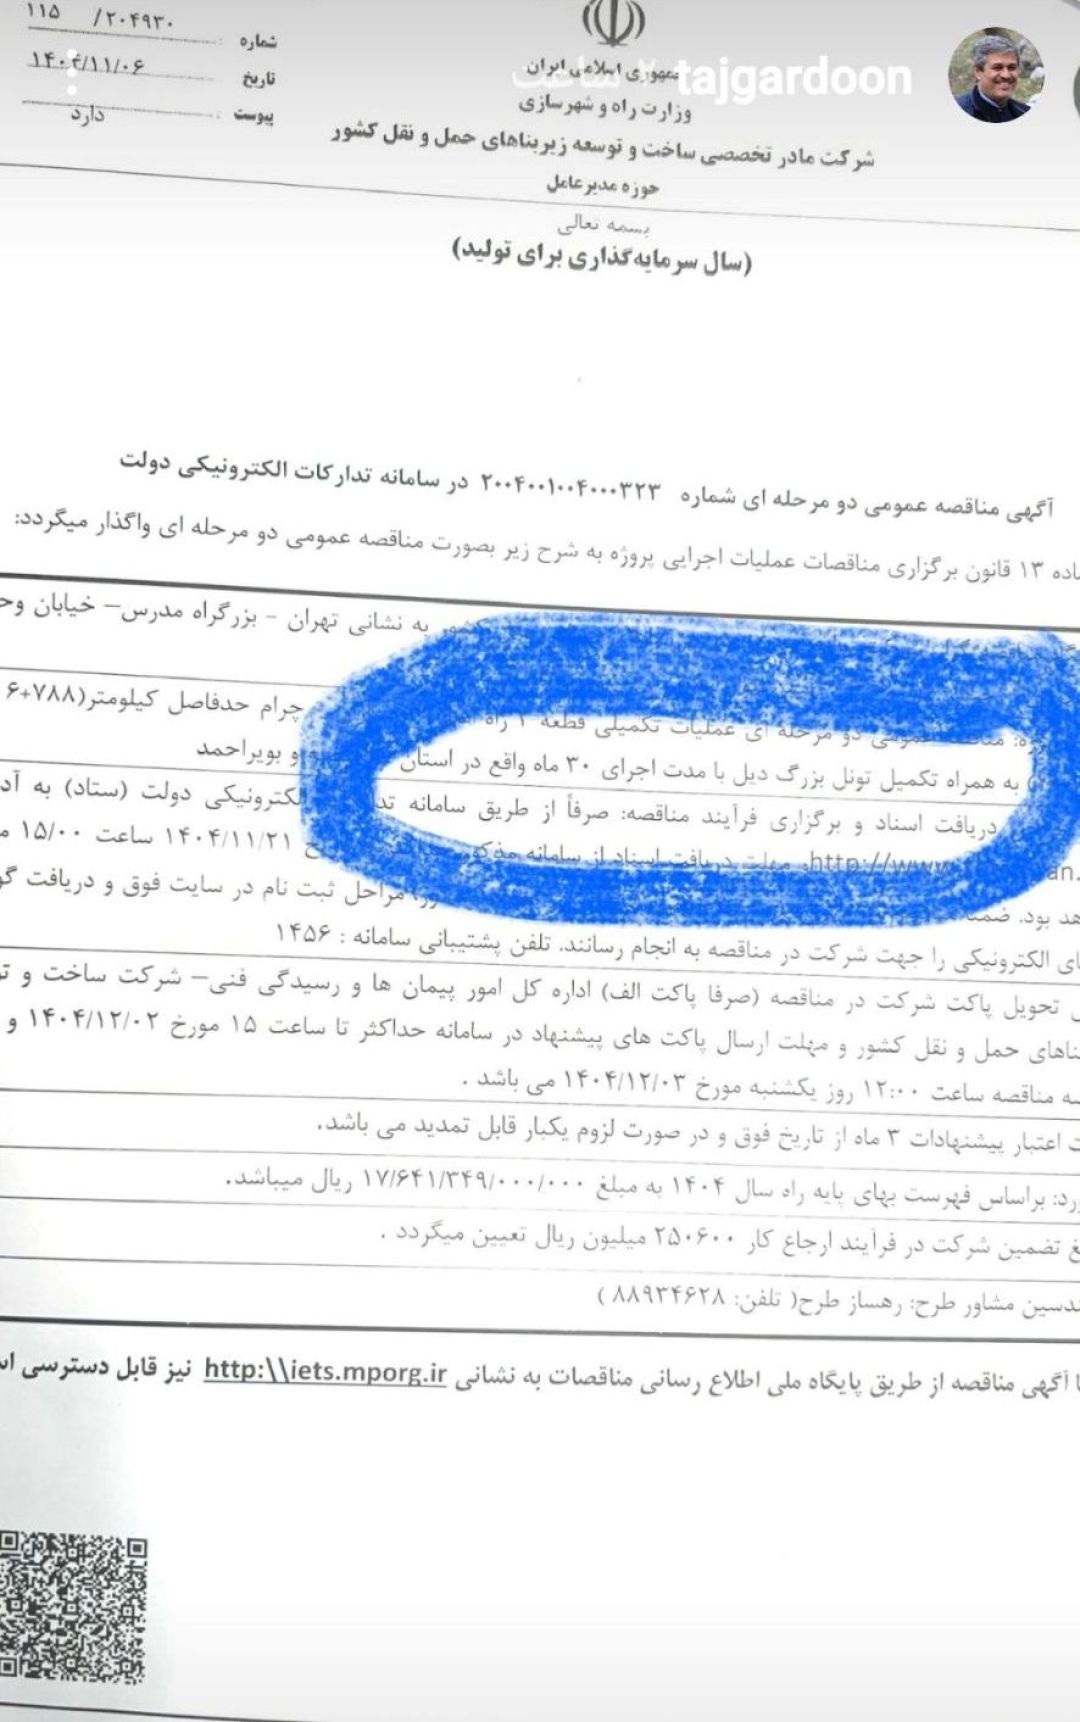 ۱۱۵ /۲۰۴۹۳۰
شماره
۱۴۰۴/۱۱/۰۶
تاریخ
دارد
پیوست
جمهوری اسلامی ایران
۲۰ ساعت tajgardoon
وزارت راه و شهرسازی
شرکت مادر تخصصی ساخت و توسعه زیربناهای حمل و نقل کشور
حوزه مدیرعامل
بسمه تعالی
(سال سرمایه‌گذاری برای تولید)
آگهی مناقصه عمومی دو مرحله ای شماره ۲۰۰۴۰۰۱۰۰۴۰۰۰۳۲۳ در سامانه تدارکات الکترونیکی دولت
ماده ۱۳ قانون برگزاری مناقصات عملیات اجرایی پروژه به شرح زیر بصورت مناقصه عمومی دو مرحله ای واگذار میگردد:
کشور به نشانی تهران - بزرگراه مدرس– خیابان
عمومی دو مرحله ای عملیات تکمیلی قطعه ۱ راه چرام حدفاصل کیلومتر(۷۸۸+۶
به همراه تکمیل تونل بزرگ دیل با مدت اجرای ۳۰ ماه واقع در استان و بویراحمد
دریافت اسناد و برگزاری فرآیند مناقصه: صرفاً از طریق سامانه الکترونیکی دولت (ستاد) به
http://www مهلت دریافت اسناد از سامانه مذکور ۱۴۰۴/۱۱/۲۱ ساعت ۱۵/۰۰
بود. مراحل ثبت نام در سایت فوق و دریافت
الکترونیکی را جهت شرکت در مناقصه به انجام رسانند. تلفن پشتیبانی سامانه : ۱۴۵۶
تحویل پاکت شرکت در مناقصه (صرفا پاکت الف) اداره کل امور پیمان ها و رسیدگی فنی– شرکت ساخت و
حمل و نقل کشور و مهلت ارسال پاکت های پیشنهاد در سامانه حداکثر تا ساعت ۱۵ مورخ ۱۴۰۴/۱۲/۰۲ و
مناقصه ساعت ۱۲:۰۰ روز یکشنبه مورخ ۱۴۰۴/۱۲/۰۳ می باشد .
اعتبار پیشنهادات ۳ ماه از تاریخ فوق و در صورت لزوم یکبار قابل تمدید می باشد.
براساس فهرست بهای پایه راه سال ۱۴۰۴ به مبلغ ۱۷/۶۴۱/۳۴۹/۰۰۰/۰۰۰ ریال میباشد.
تضمین شرکت در فرآیند ارجاع کار ۲۵۰۶۰۰ میلیون ریال تعیین میگردد .
مشاور طرح: رهساز طرح( تلفن: ۸۸۹۳۴۶۲۸ )
آگهی مناقصه از طریق پایگاه ملی اطلاع رسانی مناقصات به نشانی http:\\iets.mporg.ir نیز قابل دسترسی